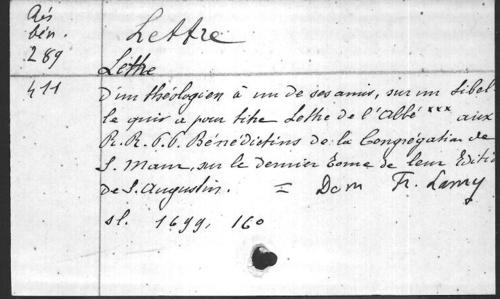 Lettre
Rés
bén.
289
411
Lettre
d'un théologien à un de ses amis, sur un libel
le qui a pour titre Lettre de l'Abbé xxx aux
R.R. P.P. Bénédictins de la Congrégation de
S. Maur, sur le dernier tome de leur Editio
de S. Augustin. = Dom Fr. Lamy
sl. 1699, 16o